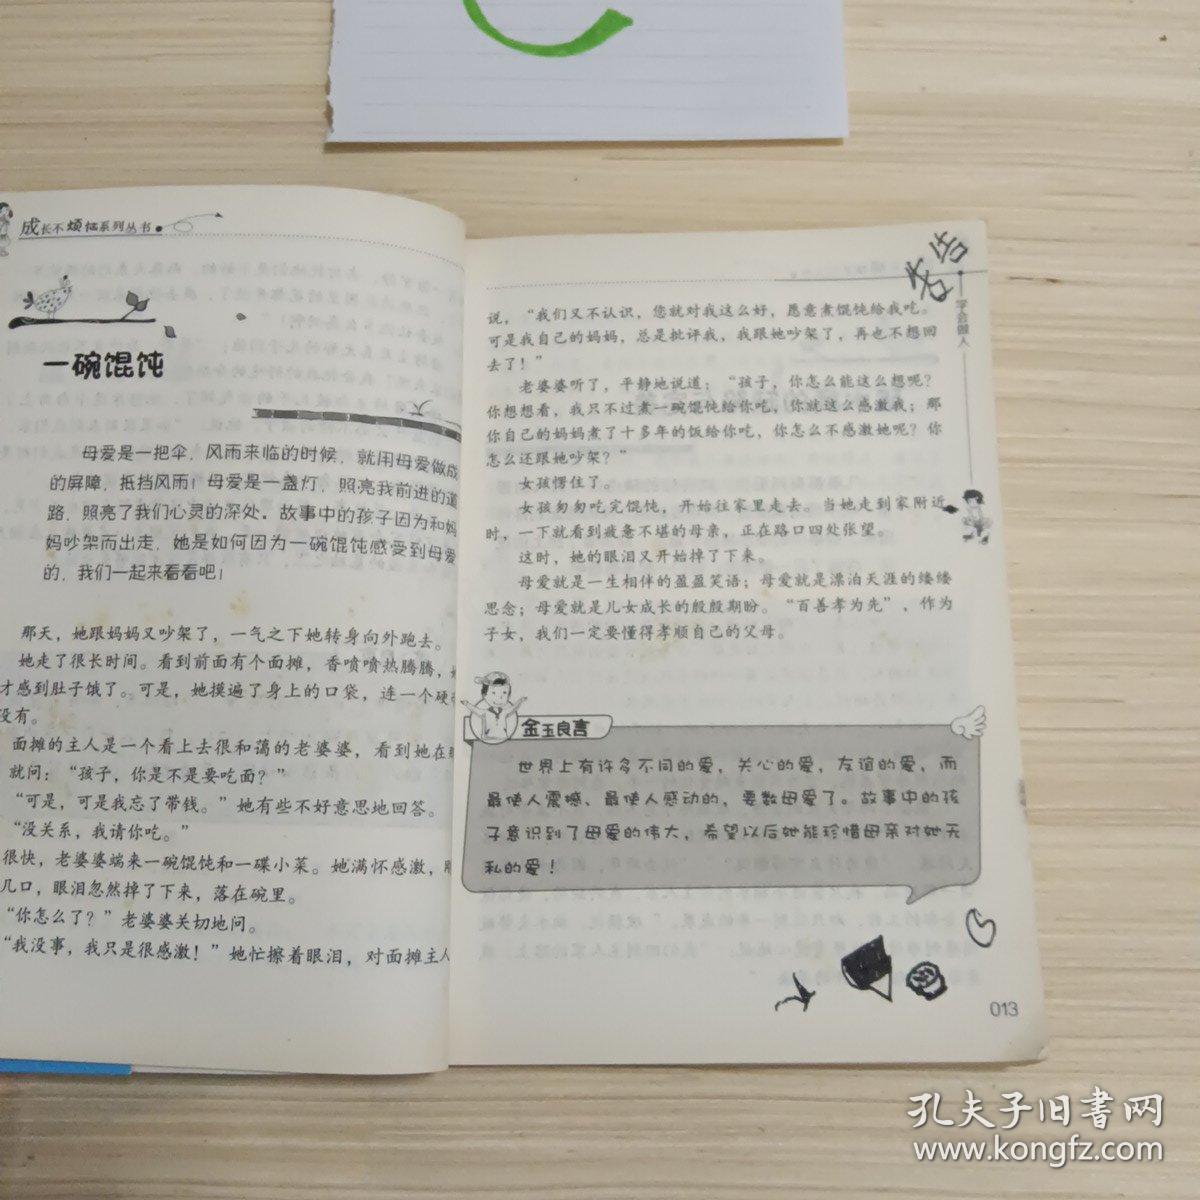 成长不烦恼系列丛书
一碗馄饨
母爱是一把伞，风雨来临的时候，就用母爱做成
的屏障，抵挡风雨！母爱是一盏灯，照亮我前进的道
路，照亮了我们心灵的深处。故事中的孩子因为和妈
妈吵架而出走，她是如何因为一碗馄饨感受到母爱
的，我们一起来看看吧！
那天，她跟妈妈又吵架了，一气之下她转身向外跑去。
她走了很长时间。看到前面有个面摊，香喷喷热腾腾，
才感到肚子饿了。可是，她摸遍了身上的口袋，连一个硬
没有。
面摊的主人是一个看上去很和蔼的老婆婆，看到她在
就问：“孩子，你是不是要吃面？”
“可是，可是我忘了带钱。”她有些不好意思地回答。
“没关系，我请你吃。”
很快，老婆婆端来一碗馄饨和一碟小菜。她满怀感激，
几口，眼泪忽然掉了下来，落在碗里。
“你怎么了？”老婆婆关切地问。
“我没事，我只是很感激！”她忙擦着眼泪，对面摊主人
告
学会做人
说，“我们又不认识，您就对我这么好，愿意煮馄饨给我吃。
可是我自己的妈妈，总是批评我，我跟她吵架了，再也不想回
去了！”
老婆婆听了，平静地说道：“孩子，你怎么能这么想呢？
你想想看，我只不过煮一碗馄饨给你吃，你就这么感激我；那
你自己的妈妈煮了十多年的饭给你吃，你怎么不感激她呢？你
怎么还跟她吵架？”
女孩愣住了。
女孩匆匆吃完馄饨，开始往家里走去。当她走到家附近
时，一下就看到疲惫不堪的母亲，正在路口四处张望。
这时，她的眼泪又开始掉了下来。
母爱就是一生相伴的盈盈笑语；母爱就是漂泊天涯的缕缕
思念；母爱就是儿女成长的殷殷期盼。“百善孝为先”，作为
子女，我们一定要懂得孝顺自己的父母。
金玉良言
世界上有许多不同的爱，关心的爱，友谊的爱，而
最使人震撼、最使人感动的，要数母爱了。故事中的孩
子意识到了母爱的伟大，希望以后她能珍惜母亲对她无
私的爱！
013
孔夫子旧书网
www.kongfz.com